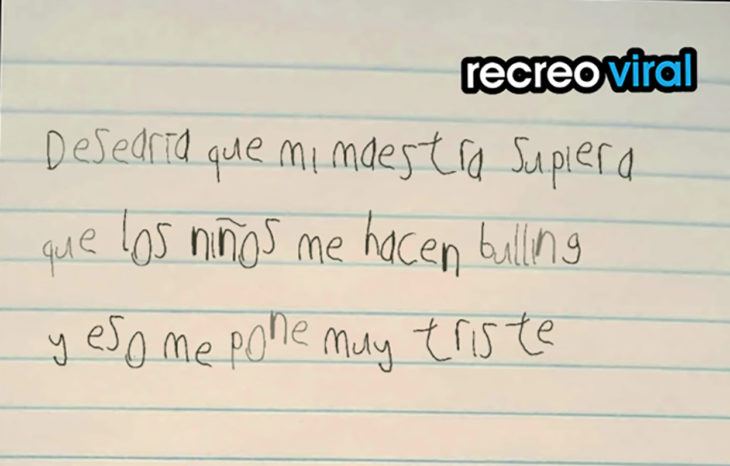 recreoviral
Desearía que mi maestra supiera
que los niños me hacen bulling
y eso me pone muy triste